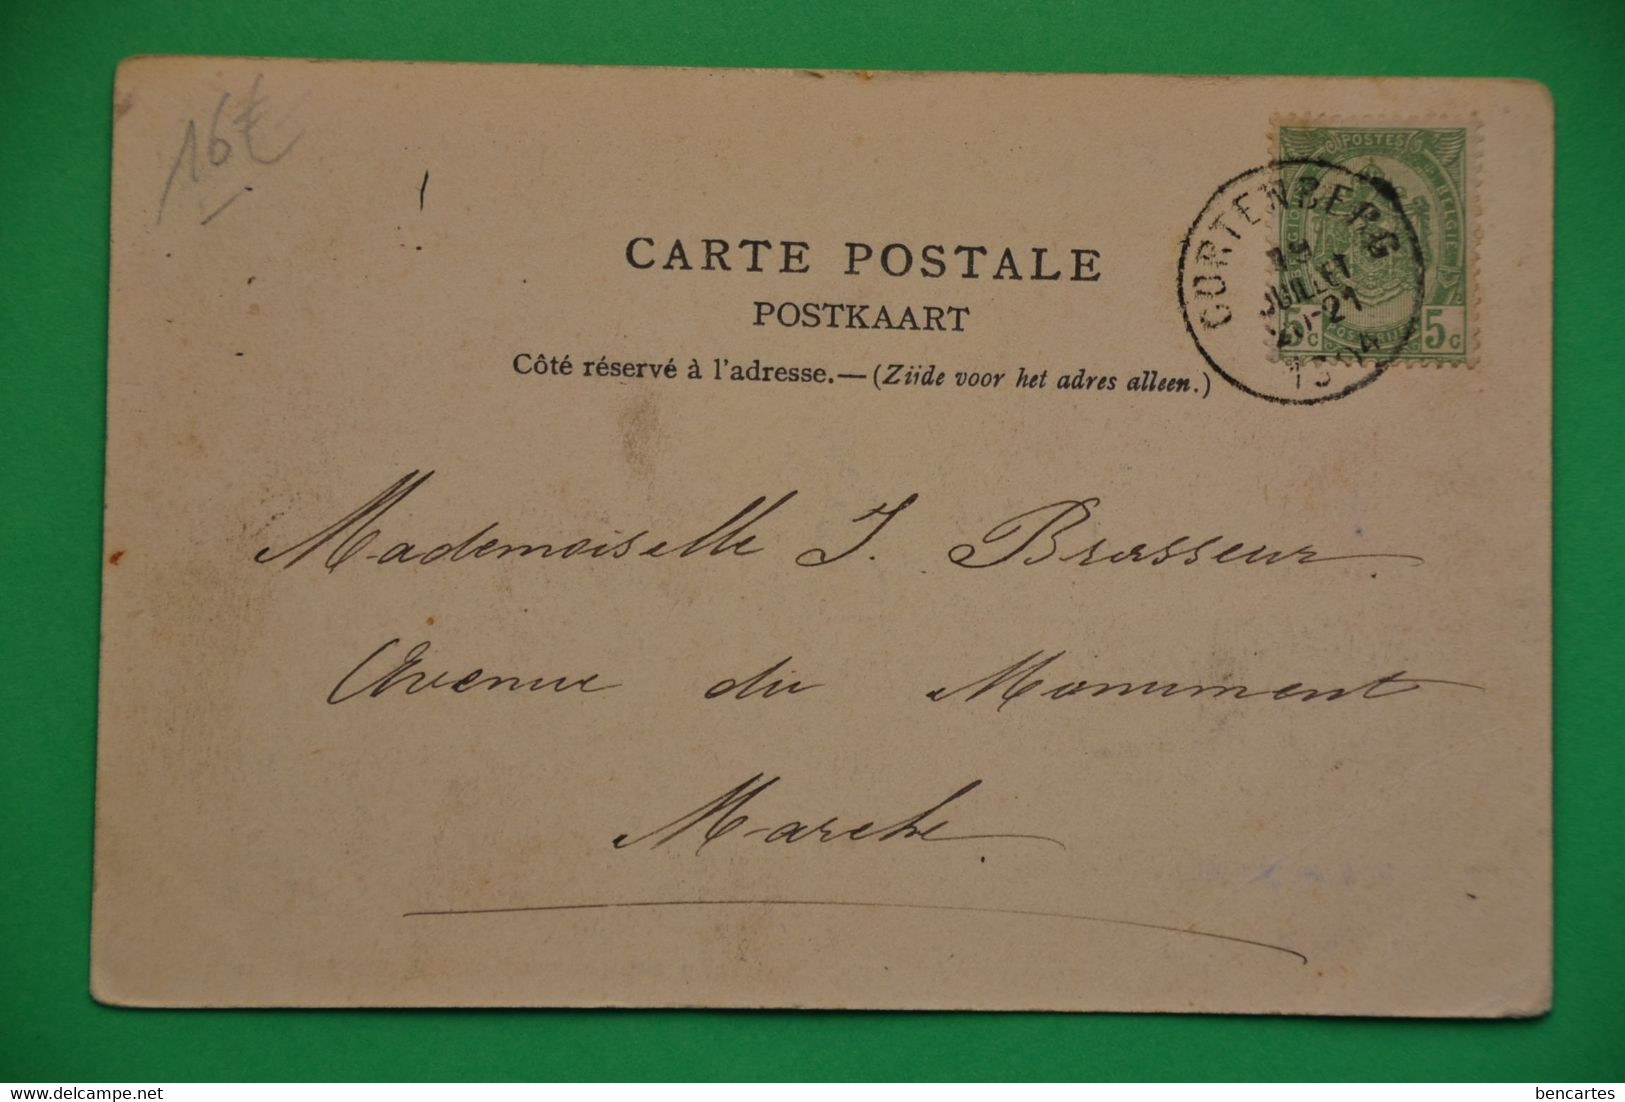 16€
CARTE POSTALE
POSTKAART
Côté réservé à l'adresse.—(Zijde voor het adres alleen.)
POSTES
BELGIE
5c 5c
CORTENBERG
JUILLET
20-21
1904
Mademoiselle J. Brasseur.
Avenue du Monument
Marche.
www.delcampe.net
bencartes